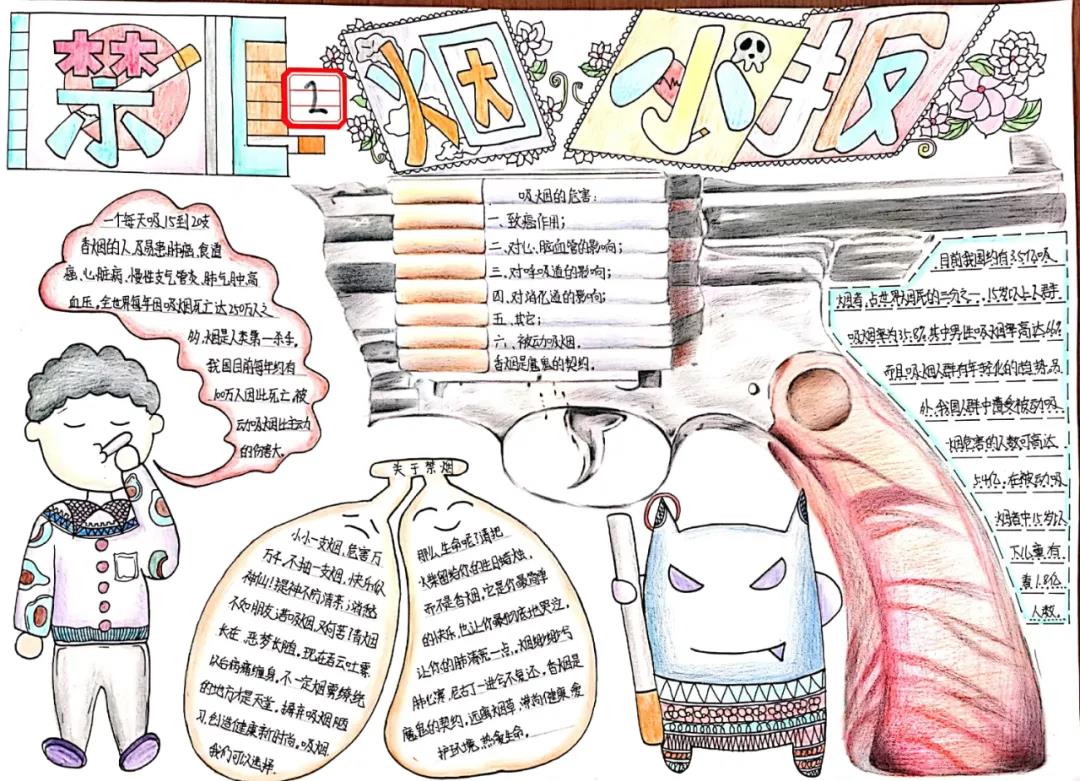 禁烟小报
2
一个每天吸15到20支
香烟的人,及易患肺癌、食道
癌、心脏病、慢性支气管炎、肺气肿、高
血压,全世界每年因吸烟死亡达250万人之
多,烟是人类第一杀手。
我国目前每年约有
100万人因此死亡,被
动吸烟比主动
的伤害大。
吸烟的危害:
一、致癌作用;
二、对心、脑血管的影响;
三、对呼吸道的影响;
四、对消化道的影响;
五、其它;
六、被动吸烟。
香烟是魔鬼的契约。
目前我国约有3.5亿吸
烟者,占世界烟民的三分之一,15岁以上人群
吸烟率为35.8%,其中男性吸烟率高达66%
而且吸烟人群有年轻化的趋势。另
外,我国人群中遭受被动吸
烟危害的人数可高达
5.4亿,在被动吸
烟者中15岁以
下儿童有
着1.8亿
人数。
关于禁烟
小小一支烟,危害万
万千,不抽一支烟,快乐似
神仙!提神不的清茶;消愁
不如朋友;若吸烟,又何苦!青烟
长在,恶梦长随,现在吞云吐雾
以后病痛缠身,不一定烟雾缭绕
的地方才是天堂,摒弃吸烟陋
习,创造健康新时尚。吸烟,
我们可以选择
那么,生命呢?请把
火柴留给你的生日蜡烛,
而不是香烟,它是你最简单
的快乐,也让你最彻底地哭泣,
让你的肺清亮一点。烟缈缈兮
肺心寒,尼古丁一进兮不复还,香烟是
魔鬼的契约,远离烟草,崇尚健康,爱
护环境,热爱生命。